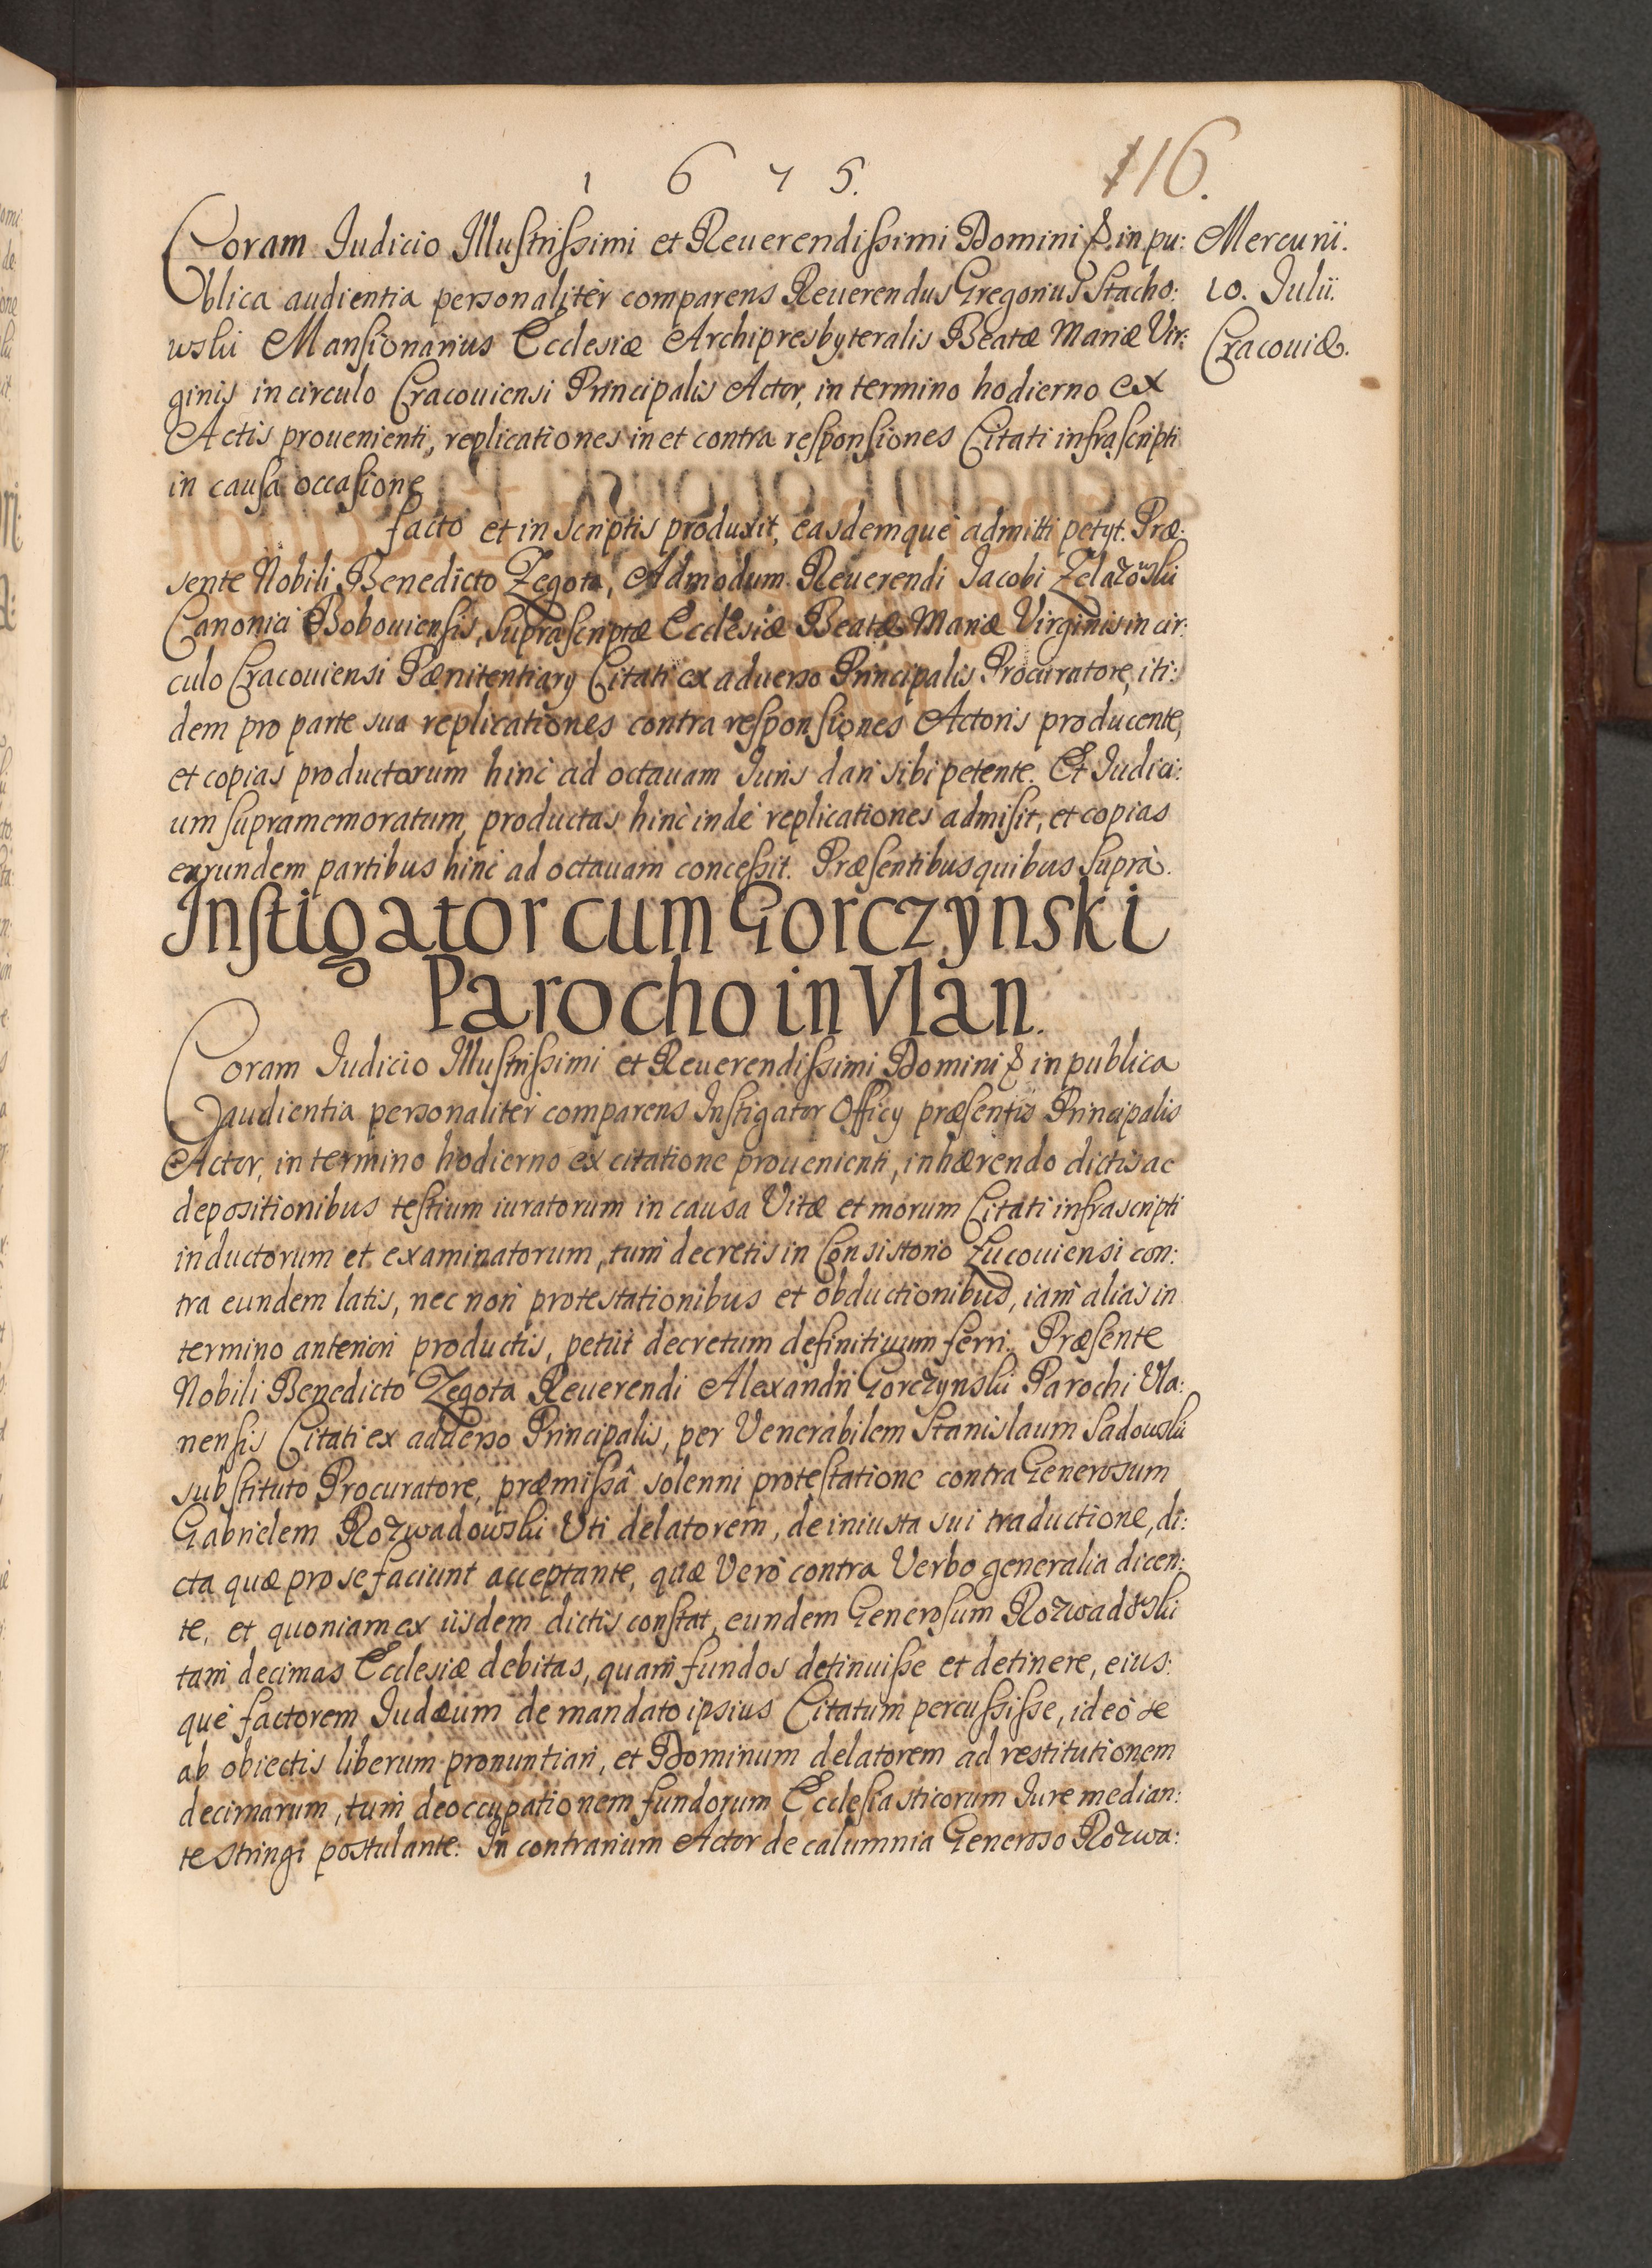 1 6 7 5.
116.
Mercurii.
10. Julii.
Cracouiæ.
Coram Judicio Illustrissimi et Reuerendissimi Domini & in pu:
blica audientia personaliter comparens Reuerendus Gregorius Stacho:
wski Mansionarius Ecclesiæ Archipresbyteralis Beatæ Mariæ Vir:
ginis in circulo Cracouiensi Principalis Actor, in termino hodierno ex
Actis prouenienti, replicationes in et contra responsiones Citati infrascripti
in causa occasione
facto et in scriptis produxit, easdemque admitti petyt. Præ:
sente Nobili Benedicto Zegota, Admodum Reuerendi Jacobi Zelazowski
Canonici Bobouiensis, suprascriptæ Ecclesiæ Beatæ Mariæ Virginis in cir:
culo Cracouiensi Pænitentiarÿ Citati ex aduerso Principalis Procuratore, iti:
dem pro parte sua replicationes contra responsiones Actoris producente,
et copias productorum hinc ad octauam Juris dari sibi petente. Et Judici:
um supramemoratum, productas hinc inde replicationes admisit, et copias
earundem partibus hinc ad octauam concessit. Præsentibus quibus supra.
Instigator cum Gorczynski
Parocho in Vlan.
Coram Judicio Illustrissimi et Reuerendissimi Domini & in publica
audientia personaliter comparens Instigator Officÿ præsentis Principalis
Actor, in termino hodierno ex citatione prouenienti, inhærendo dictis ac
depositionibus testium iuratorum in causa Vitæ et morum Citati infrascripti
inductorum et examinatorum, tum decretis in Consistorio Łucouiensi con:
tra eundem latis, nec non protestationibus et obductionibus, iam alias in
termino anteriori productis, petiit decretum definitiuum ferri. Præsente
Nobili Benedicto Zegota Reuerendi Alexandri Gorczynski Parochi Vla:
nensis Citati ex aduerso Principalis, per Venerabilem Stanislaum Sadowski
substituto Procuratore, præmissâ solenni protestatione contra Generosum
Gabrielem Rozwadowski Uti delatorem, de iniusta sui traductione, di:
cta quæ pro se faciunt acceptante, quæ Verò contra Verbo generalia dicen:
te, et quoniam ex iisdem dictis constat, eundem Generosum Rozwadowski
tam decimas Ecclesiæ debitas, quam fundos detinuisse et detinere, eius:
que factorem Judæum de mandato ipsius Citatum percussisse, ideò se
ab obiectis liberum pronuntiari, et Dominum delatorem ad restitutionem
decimarum, tum deoccupationem fundorum Ecclesiasticorum Jure median:
te stringi postulante. In contrarium Actor de calumnia Generoso Rozwa: